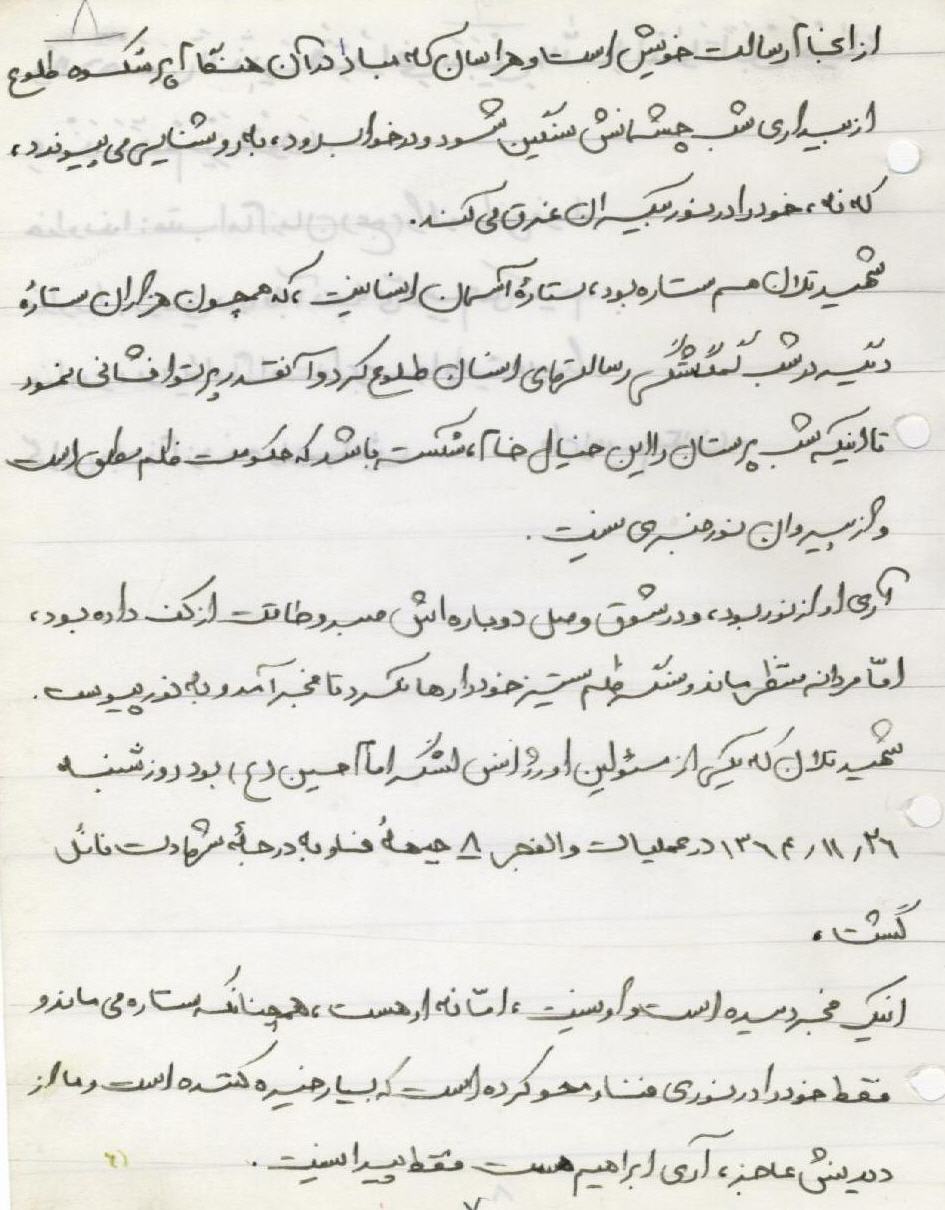 ۸
از انجام رسالت خویش است و هراسان که مبادا در آن هنگام پرشکوه طلوع
از بیداری شب چشمانش سنگین شود و در خواب رود، به روشنایی می پیوندد،
که نه، خود را در نور بیکران غرق می کند.
شهید تلان هم ستاره بود، ستارهٔ آسمان انسانیت، که همچون هزاران ستارهٔ
دیگر در شب گمگشتگی رسالتهای انسان طلوع کرد و آنقدر پرتو افشانی نمود
تا اینکه شب پرستان را این خیال خام، شکسته باشد که حکومت ظلم مطلق است
و از پیروان نور خبری نیست.
آری او از نور بود، و در شوق وصل دوباره اش صبر و طاقت از کف داده بود،
امّا مردانه منتظر ماند و سنگر ظلم ستیز خود را رها نکرد تا فجر آمد و به نور پیوست.
شهید تلان که یکی از مسئولین اورژانس لشگر امام حسین (ع) بود روز شنبه
۱۳۶۴/۱۱/۲۶ در عملیات والفجر ۸ جبههٔ فاو به درجهٔ شهادت نائل
گشت،
اینک فجر دمیده است و او نیست، امّا نه او هست، همچنانکه ستاره می ماند و
فقط خود را در نوری محو کرده است که بسیار خیره کننده است و ما از
دیدنش عاجز، آری ابراهیم هست فقط پیدا نیست.
۷